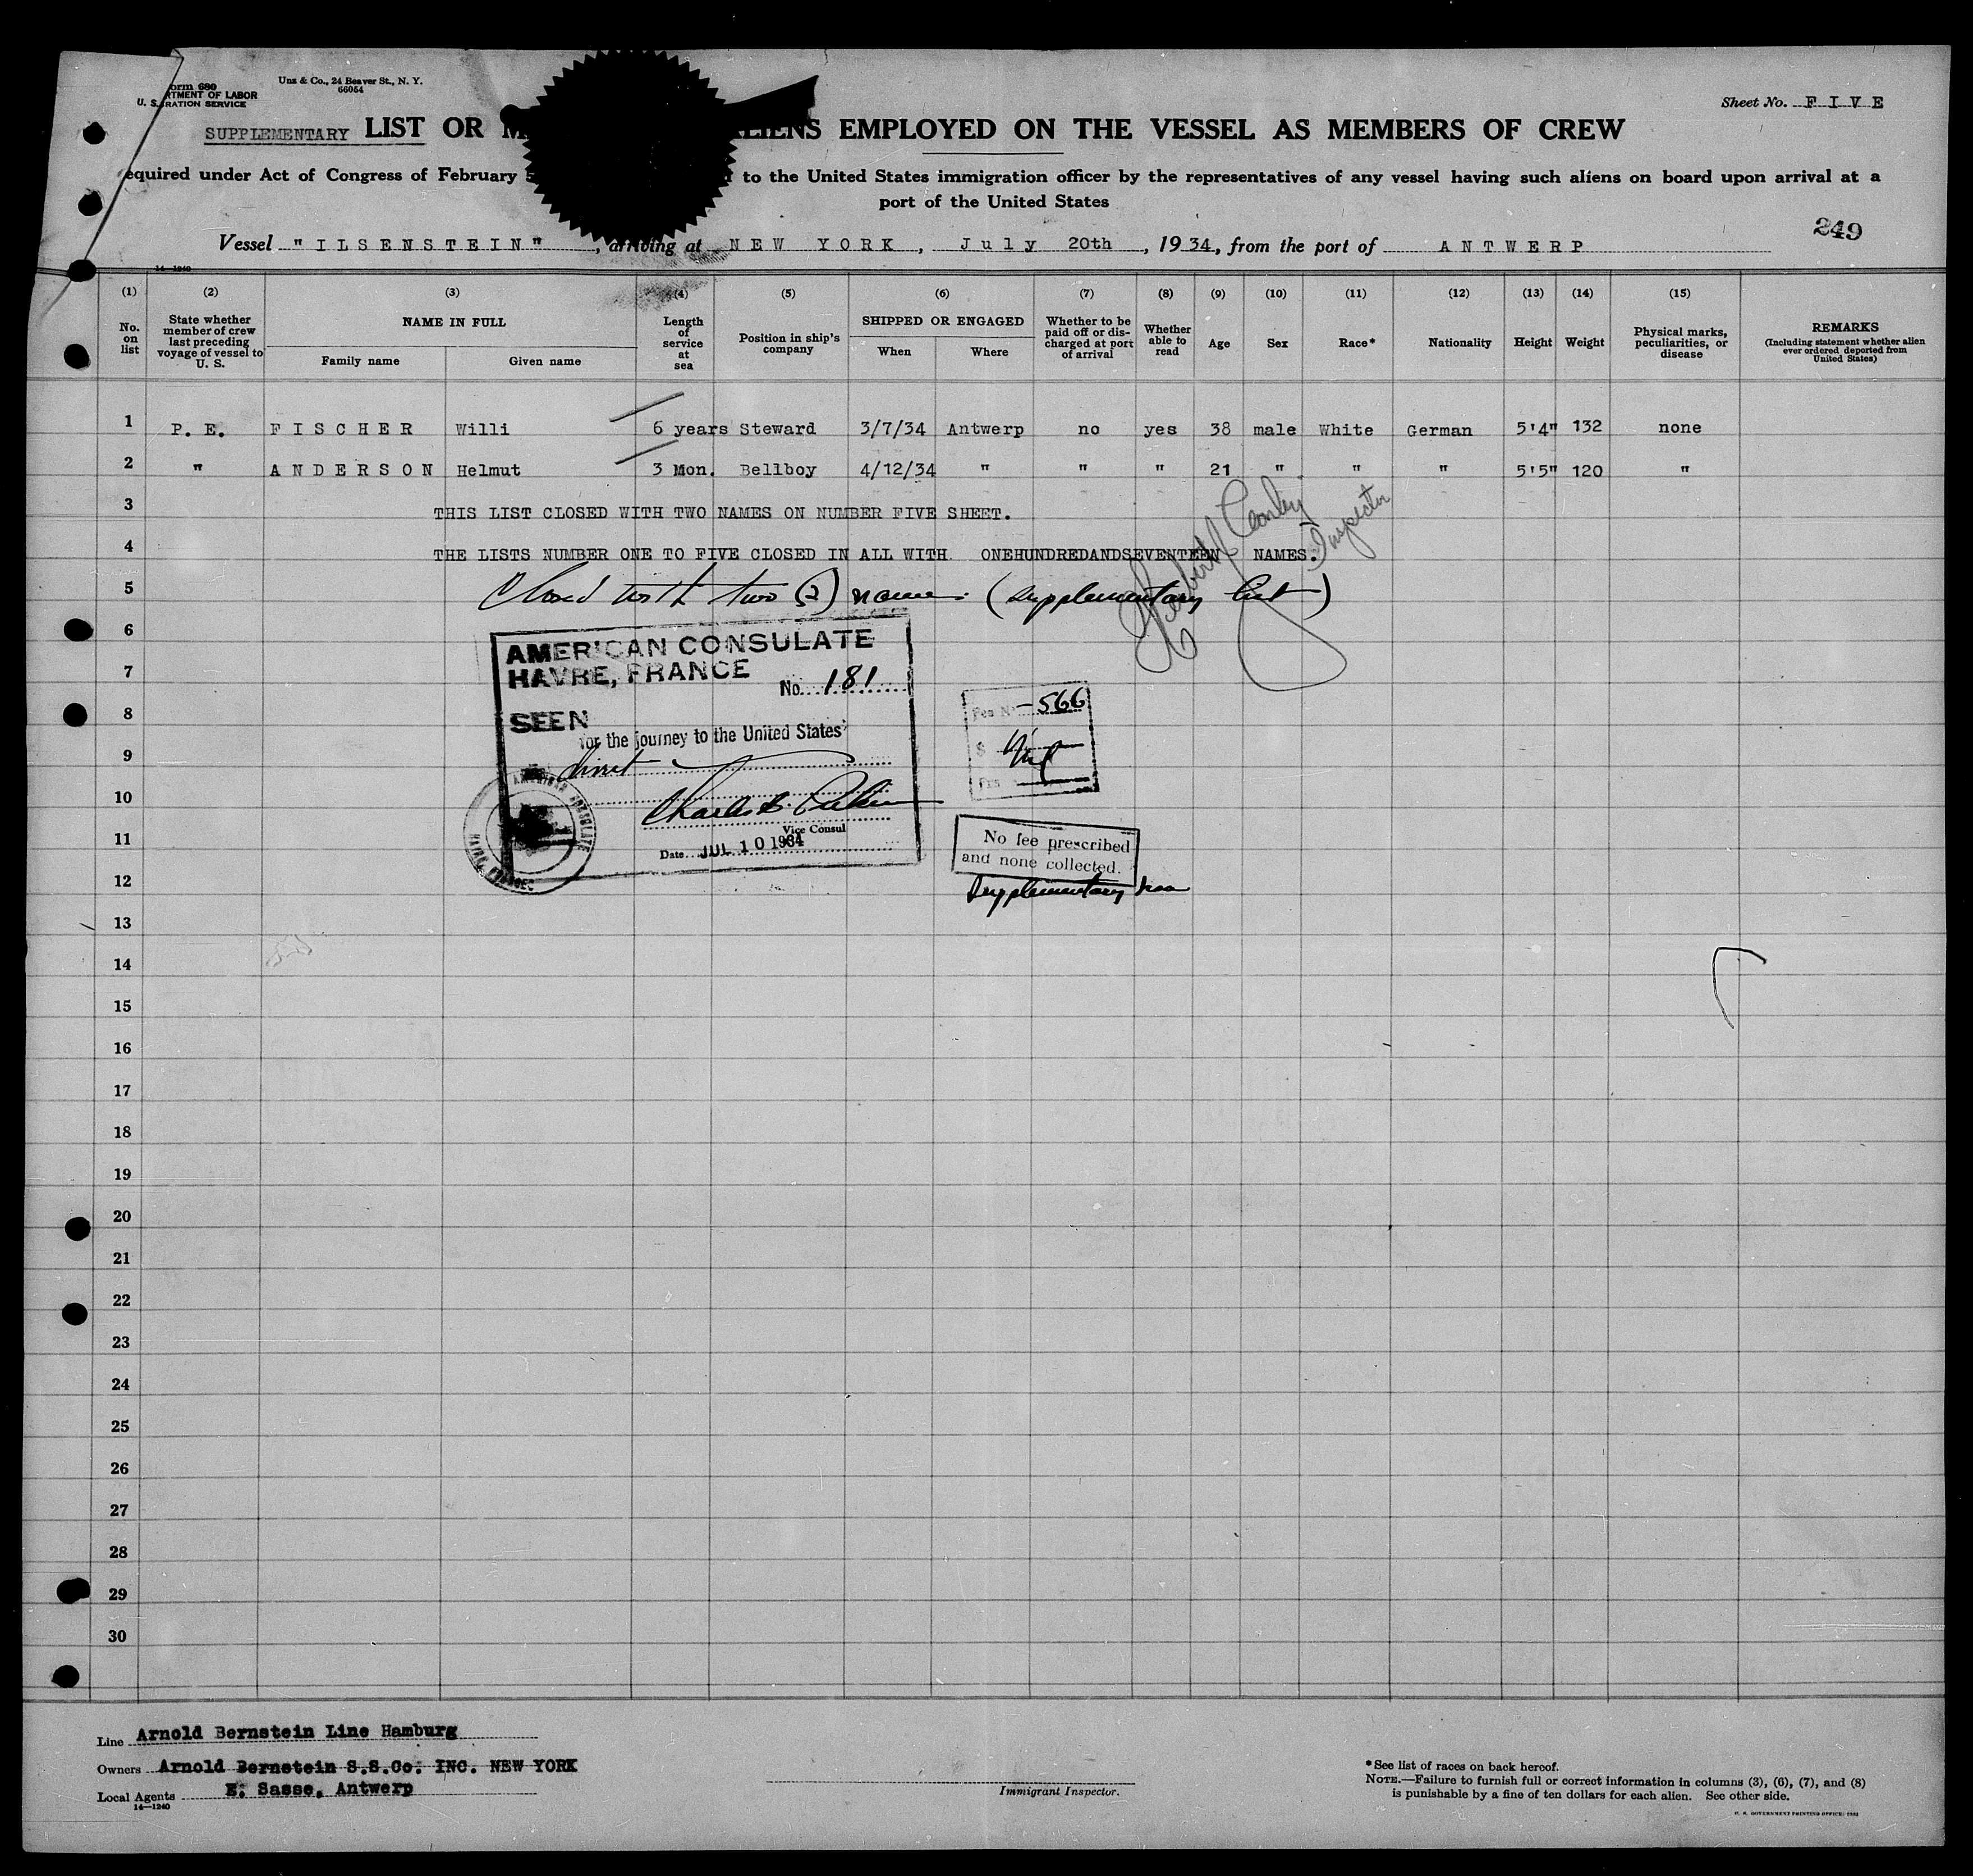 Form 680
U. S. DEPARTMENT OF LABOR
IMMIGRATION SERVICE
Unz & Co., 24 Beaver St., N. Y.
66054
Sheet No. F I V E
SUPPLEMENTARY LIST OR ALIENS EMPLOYED ON THE VESSEL AS MEMBERS OF CREW
equired under Act of Congress of February 5 to the United States immigration officer by the representatives of any vessel having such aliens on board upon arrival at a
port of the United States
249
Vessel "ILSENSTEIN", arriving at NEW YORK, July 20th, 1934, from the port of ANTWERP
14—1240
(1) (2) (3) (4) (5) (6) (7) (8) (9) (10) (11) (12) (13) (14) (15)
No. on list
State whether member of crew last preceding voyage of vessel to U. S.
NAME IN FULL
Family name
Given name
Length of service at sea
Position in ship's company
SHIPPED OR ENGAGED
When
Where
Whether to be paid off or dis-charged at port of arrival
Whether able to read
Age
Sex
Race*
Nationality
Height
Weight
Physical marks, peculiarities, or disease
REMARKS
(Including statement whether alien ever ordered deported from United States)
1 P. E. FISCHER Willi 6 years Steward 3/7/34 Antwerp no yes 38 male White German 5'4" 132 none
2 " ANDERSON Helmut 3 Mon. Bellboy 4/12/34 " " " 21 " " " 5'5" 120 "
3 THIS LIST CLOSED WITH TWO NAMES ON NUMBER FIVE SHEET.
4 THE LISTS NUMBER ONE TO FIVE CLOSED IN ALL WITH ONEHUNDREDANDSEVENTEEN NAMES.
Inspector
5 Closed with two (2) names (supplementary list)
6
AMERICAN CONSULATE
HAVRE, FRANCE
7
No. 181
8
SEEN
for the journey to the United States
9
direct
Fee No. 566
$ Nil
10
Charles B.
11
Vice Consul
Date JUL 10 1934
AMERICAN CONSULATE
HAVRE, FRANCE
No fee prescribed
and none collected.
12
Supplementary
13
14
15
16
17
18
19
20
21
22
23
24
25
26
27
28
29
30
Line Arnold Bernstein Line Hamburg
Owners Arnold Bernstein S.S.Co. INC. NEW YORK
Local Agents E. Sasse, Antwerp
14—1240
Immigrant Inspector.
*See list of races on back hereof.
NOTE.—Failure to furnish full or correct information in columns (3), (6), (7), and (8)
is punishable by a fine of ten dollars for each alien. See other side.